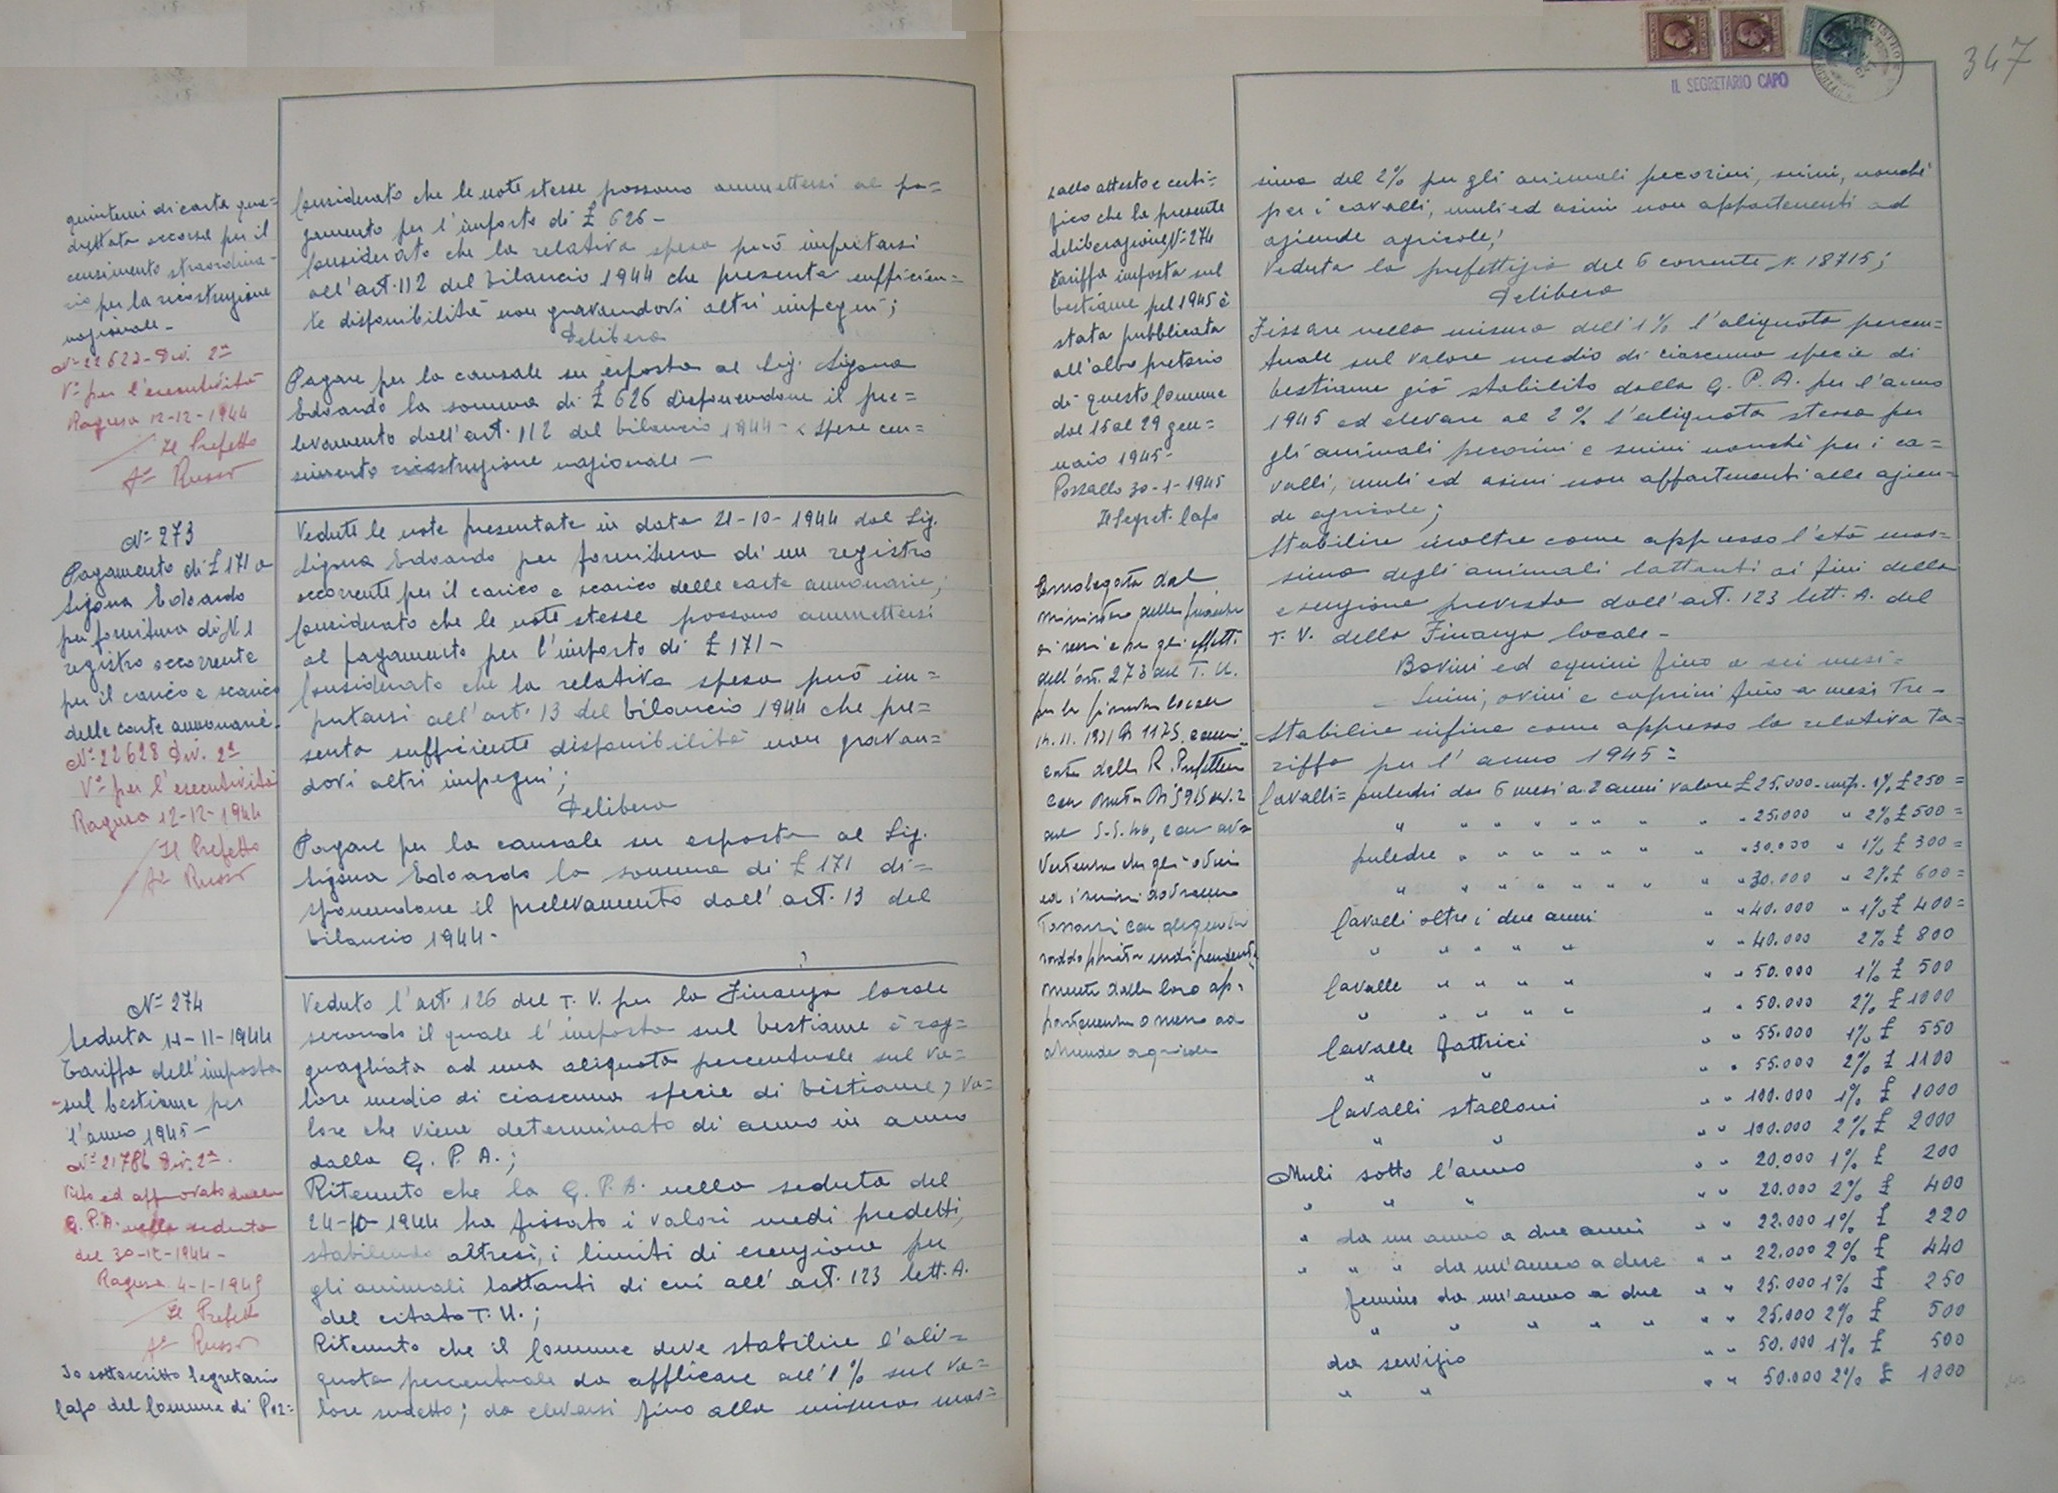 quinterni di carta qua=
drettata occorsa per il
censimento straordina=
rio per la ricostruzione
nazionale -
N= 22622 - Div. 2ª
Vº per l'esecutività
Ragusa 12-12-1944
Il Prefetto
Fº Russo
Considerato che le note stesse possono ammettersi al pa=
gamento per l'importo di £ 626 -
Considerato che la relativa spesa può imputarsi
all'art. 112 del bilancio 1944 che presenta sufficien=
te disponibilità non gravandovi altri impegni;
Delibera
Pagare per la causale su esposta al Sig. Sigona
Edoardo la somma di £ 626 disponendone il pre=
levamento dall'art. 112 del bilancio 1944 - < spese cen=
simento ricostruzione nazionale -
N= 273
Pagamento di £ 171 a
Sigona Edoardo
per fornitura di N. 1
registro occorrente
per il carico e scarico
delle carte annonarie -
N= 22628 Div. 2ª
Vº per l'esecutività
Ragusa 12-12-1944
Il Prefetto
Fº Russo
Vedute le note presentate in data 21-10-1944 dal Sig.
Sigona Edoardo per fornitura di un registro
occorrente per il carico e scarico delle carte annonarie;
Considerato che le note stesse possono ammettersi
al pagamento per l'importo di £ 171 -
Considerato che la relativa spesa può im=
putarsi all'art. 13 del bilancio 1944 che pre=
senta sufficiente disponibilità non gravan=
dovi altri impegni;
Delibera
Pagare per la causale su esposta al Sig.
Sigona Edoardo la somma di £ 171 di=
sponendone il prelevamento dall'art. 13 del
bilancio 1944 -
N= 274
Seduta 14-11-1944
Tariffa dell'imposta
sul bestiame per
l'anno 1945 -
N= 21786 Div. 2ª.
Visto ed approvato dalla
G. P. A. nella seduta
del 30-12-1944 -
Ragusa 4-1-1945
Il Prefetto
Fº Russo
Io sottoscritto Segretario
Capo del Comune di Poz=
Veduto l'art. 126 del T. U. per la Finanza locale
secondo il quale l'imposta sul bestiame è rag=
guagliata ad una aliquota percentuale sul va=
lore medio di ciascuna specie di bestiame, va=
lore che viene determinato di anno in anno
dalla G. P. A.;
Ritenuto che la G. P. A. nella seduta del
24-10-1944 ha fissato i valori medi predetti,
stabilendo altresì, i limiti di esenzione per
gli animali lattanti di cui all'art. 123 lett. A.
del citato T. U.;
Ritenuto che il Comune deve stabilire l'ali=
quota percentuale da applicare all'1% sul va=
lore sudetto; da elevarsi fino alla misura mas=
347
IL SEGRETARIO CAPO
zallo attesto e certi=
fico che la presente
deliberazione, N= 274
tariffa imposta sul
bestiame pel 1945 è
stata pubblicata
all'albo pretorio
di questo Comune
dal 15 al 29 gen=
naio 1945 -
Pozzallo 30-1-1945
Il Segret. Capo
Omologata dal
Ministro delle finanze
ai sensi e per gli effetti
dell'art. 273 del T. U.
per la finanza locale
14.11.1931 N 1175, comuni=
cata dalla R. Prefettura
con nota N 5915 div. 2
del 5-5-46, con av=
vertenza che gli ovini
ed i suini dovranno
tassarsi con aliquota
raddoppiata indipendente=
mente dalla loro ap=
partenenza o meno ad
aziende agricole
sima del 2% per gli animali pecorini, suini, nonchè
per i cavalli, muli ed asini non appartenenti ad
aziende agricole;
Veduta la prefettizia del 6 corrente N. 18715;
Delibera
Fissare nella misura dell'1% l'aliquota percen=
tuale sul valore medio di ciascuna specie di
bestiame già stabilito dalla G. P. A. per l'anno
1945 ed elevare al 2% l'aliquota stessa per
gli animali pecorini e suini nonchè per i ca=
valli, muli ed asini non appartenenti alle azien=
de agricole;
Stabilire inoltre come appresso l'età mas=
sima degli animali lattanti ai fini della
esenzione prevista dall'art. 123 lett. A. del
T. U. della Finanza locale -
Bovini ed equini fino a sei mesi -
Suini, ovini e caprini fino a mesi tre -
Stabilire infine come appresso la relativa ta=
riffa per l'anno 1945 =
Cavalli = puledri dai 6 mesi a 2 anni valore £ 25.000 - imp. 1% £ 250 =
" " " " " " " " " 25.000 " 2% £ 500 =
puledre " " " " " " " " 30.000 " 1% £ 300 =
" " " " " " " " " 30.000 " 2% £ 600 =
Cavalli oltre i due anni " " 40.000 " 1% £ 400 =
" " " " " " " 40.000 2% £ 800
Cavalle " " " " " " 50.000 1% £ 500
" " " " " " " 50.000 2% £ 1000
Cavalle fattrici " " 55.000 1% £ 550
" " " " 55.000 2% £ 1100
Cavalli stalloni " " 100.000 1% £ 1000
" " " " 100.000 2% £ 2000
Muli sotto l'anno " " 20.000 1% £ 200
" " " " " 20.000 2% £ 400
" da un anno a due anni " " 22.000 1% £ 220
" " " da un'anno a due " " 22.000 2% £ 440
femine da un'anno a due " " 25.000 1% £ 250
" " " " " " " 25.000 2% £ 500
da servizio " " 50.000 1% £ 500
" " " " 50.000 2% £ 1000